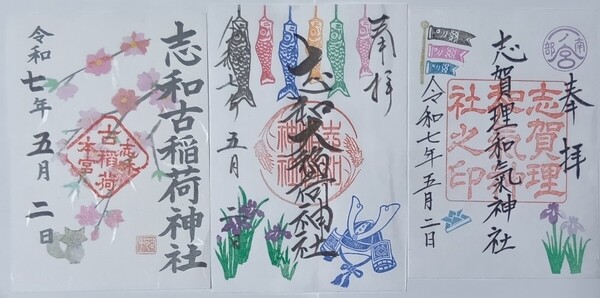 志和古稲荷神社
志和
古稲荷
本宮
令和七年五月二日
奉拝
志和大稲荷神社
令和七年五月二日
南部
一ノ宮
奉拝
志賀理和氣神社
志賀理
和気神
社之印
令和七年五月二日